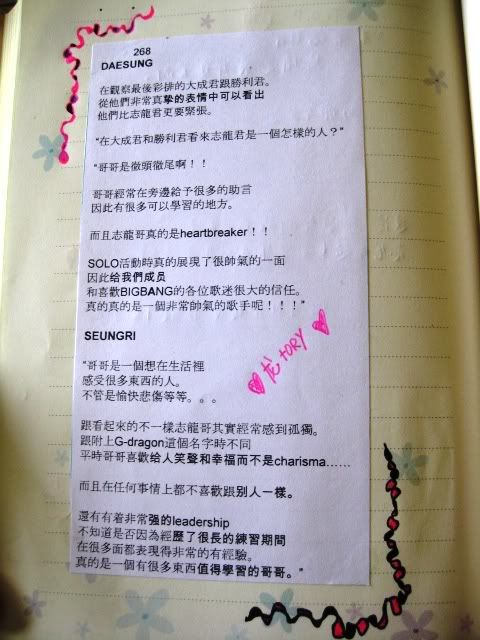 268
DAESUNG
在觀察最後彩排的大成君跟勝利君。
從他們非常真摯的表情中可以看出
他們比志龍君更要緊張。
“在大成君和勝利君看來志龍君是一個怎樣的人？”
“哥哥是徹頭徹尾啊！！
哥哥經常在旁邊給予很多的助言
因此有很多可以學習的地方。
而且志龍哥真的是heartbreaker！！
SOLO活動時真的展現了很帥氣的一面
因此给我們成员
和喜歡BIGBANG的各位歌迷很大的信任。
真的真的是一個非常帥氣的歌手呢！！！”
SEUNGRI
“哥哥是一個想在生活裡
感受很多東西的人。
不管是愉快悲傷等等。。。
跟看起來的不一樣志龍哥其實經常感到孤獨。
跟附上G-dragon這個名字時不同
平時哥哥喜歡给人笑聲和幸福而不是charisma……
而且在任何事情上都不喜歡跟别人一樣。
還有有着非常强的leadership
不知道是否因為經歷了很長的練習期間
在很多面都表現得非常的有經驗。
真的是一個有很多東西值得學習的哥哥。”
TORY